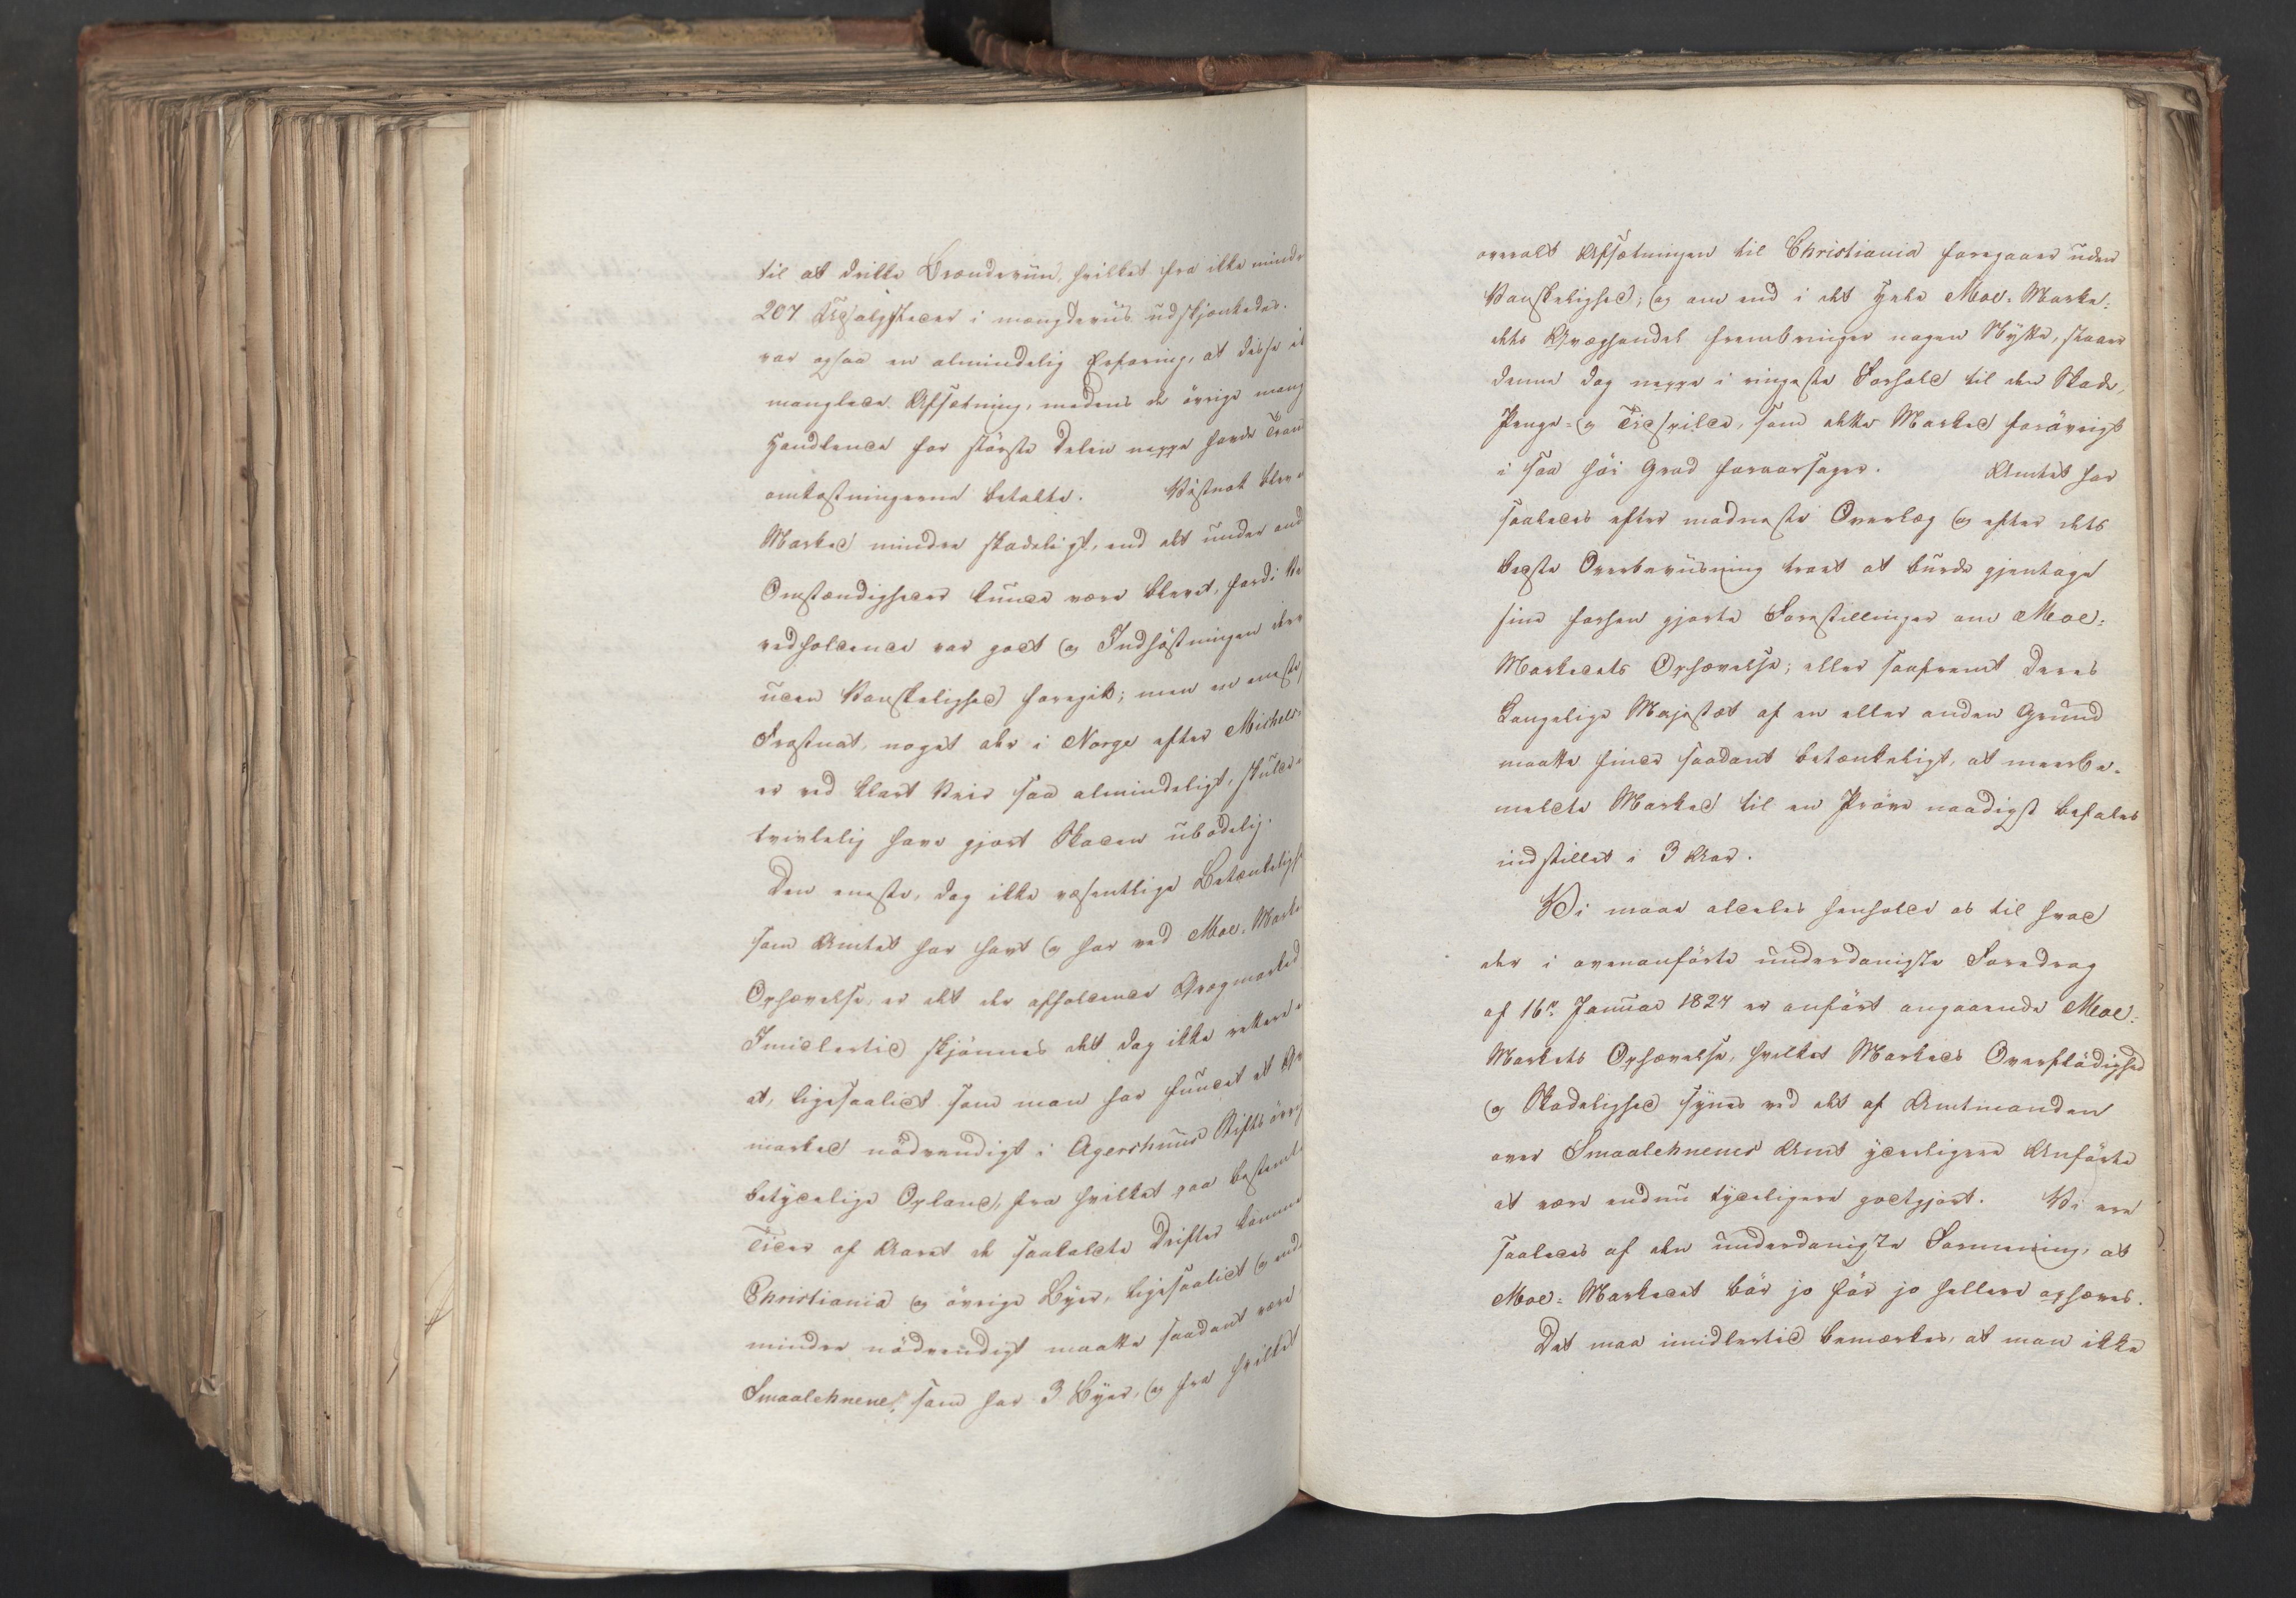 til at drikke Brændeviin, hvilket fra ikke mindr
207 Udsalgsteder i mængdeviis udskjænkedes.
var ogsaa en almindelig Erfaring, at disse i
manglede Afsætning, medens de øvrige mang
Handlende for største Delen neppe havde Tran
omkostningerne betalte. Vistnok blev
Marked mindre skadeligt, end det under and
Omstændigheder kunde være blevet, fordi Ve
vedholdende var godt og Indhøstningen der
uden Vanskelighed foregik; men en eneste
Frostnat, noget der i Norge efter Michels-
er ved klart Veir saa almindeligt, skulde
tvivlelig have gjort Skaden ubødelig.
Den eneste, dog ikke væsentlige Betænkeligh
som Amtet har havt og har ved Moe-Marke
Ophævelse, er det der afholdende Qvægmarked
Imidlertid skjønnes det dog ikke rettere
at, ligesaalidt som man har fundet et Qv
marked nødvendigt i Agershuus Stifts øvr
betydelige Opland, fra hvilket paa bestemte
Tider af Aaret de saakaldte Drifter komme
Christiania og øvrige Byer, ligesaalidt og end
mindre nødvendigt maatte saadant være
Smaalehnene, som har 3 Byer, og fra hvilket
overalt Afsætningen til Christiania foregaaer uden
Vanskelighed; og om end i det Hele Moe-Marke-
dets Qvæghandel frembringer nogen Nytte, staaer
denne dog neppe i ringeste Forhold til den Skade,
Penge- og Tidsspilde, som dette Marked forøvrigt
i saa høi Grad foraarsager. Amtet har
saaledes efter modneste Overlæg og efter dets
bedste Overbeviisning troet at burde gjentage
sine forhen gjorte Forestillinger om Moe-
Markedets Ophævelse; eller saafremt Deres
Kongelige Majestæt af en eller anden Grund
maatte finde saadant betænkeligt, at meerbe-
meldte Marked til en Prøve naadigst befales
indstillet i 3 Aar.
Vi maae aldeles henholde os til hvad
der i ovenanførte underdanigste Foredrag
af 16de Januar 1824 er anført angaaende Moe-
Markets Ophævelse, hvilket Markeds Overflødighed
og Skadelighed synes ved det af Amtmanden
over Smaalehnenes Amt yderligere Anførte
at være endnu tydeligere godtgjort. Vi ere
saaledes af den underdanigste Formening, at
Moe-Markedet bør jo før jo hellere ophæves.
Det maa imidlertid bemærkes, at man ikke